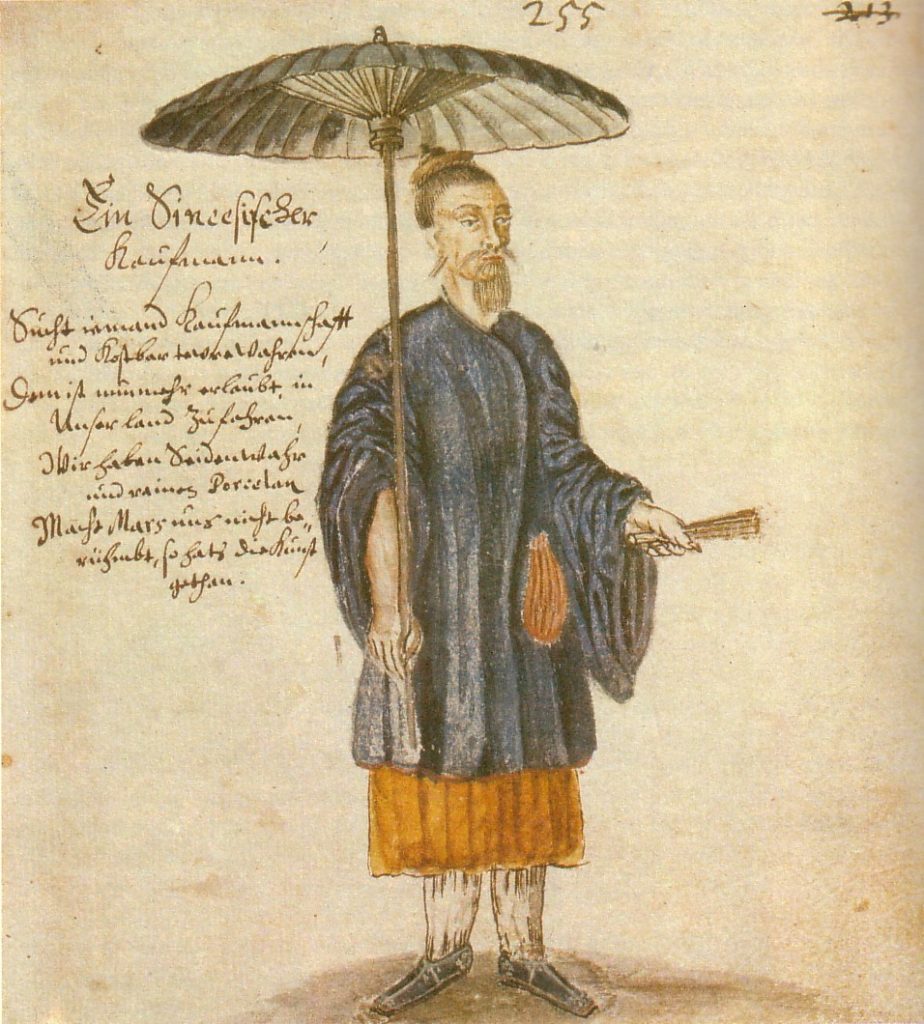 255
213
Ein Sineesischer
Kaufmann.
Sucht iemand Kaufmannschafft
und Kostbar teure Wahren,
Dem ist nunmehr erlaubt, in
Unser land zu fahren,
Wir haben Seidenwahr
und reinen Porcelan
Macht Mars uns nicht be-
rühmbt, so hats die Kunst
gethan.